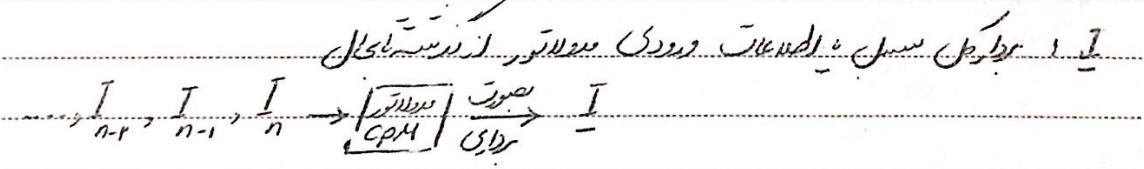 I : بردار کل سمبل یا اطلاعات ورودی مدولاتور از گذشته تا بحال
...., I_{n-۲}, I_{n-۱}, I_n → مدولاتور CPM → بصورت برداری I